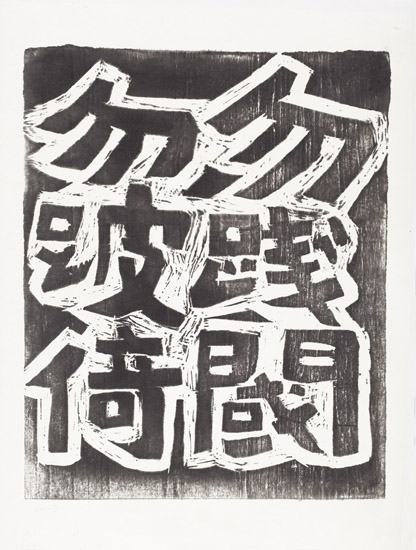 勿践閾
勿跛倚